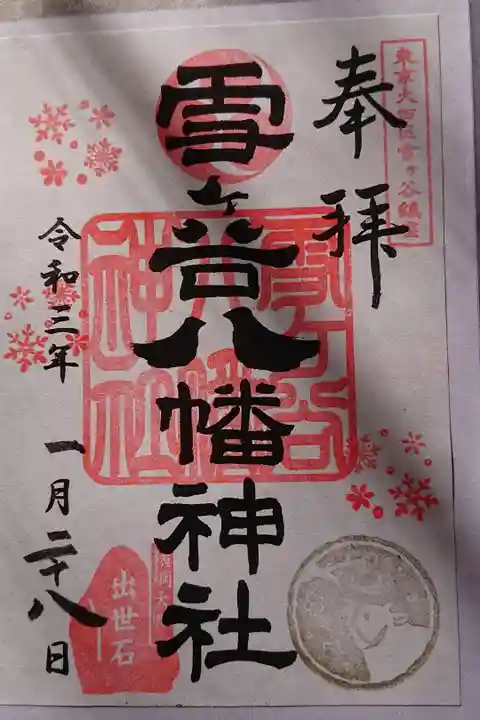 東京大田区雪ヶ谷鎮座
奉拝
雪ヶ谷八幡神社
雪ヶ谷八幡神社
令和三年
一月二十八日
出世石